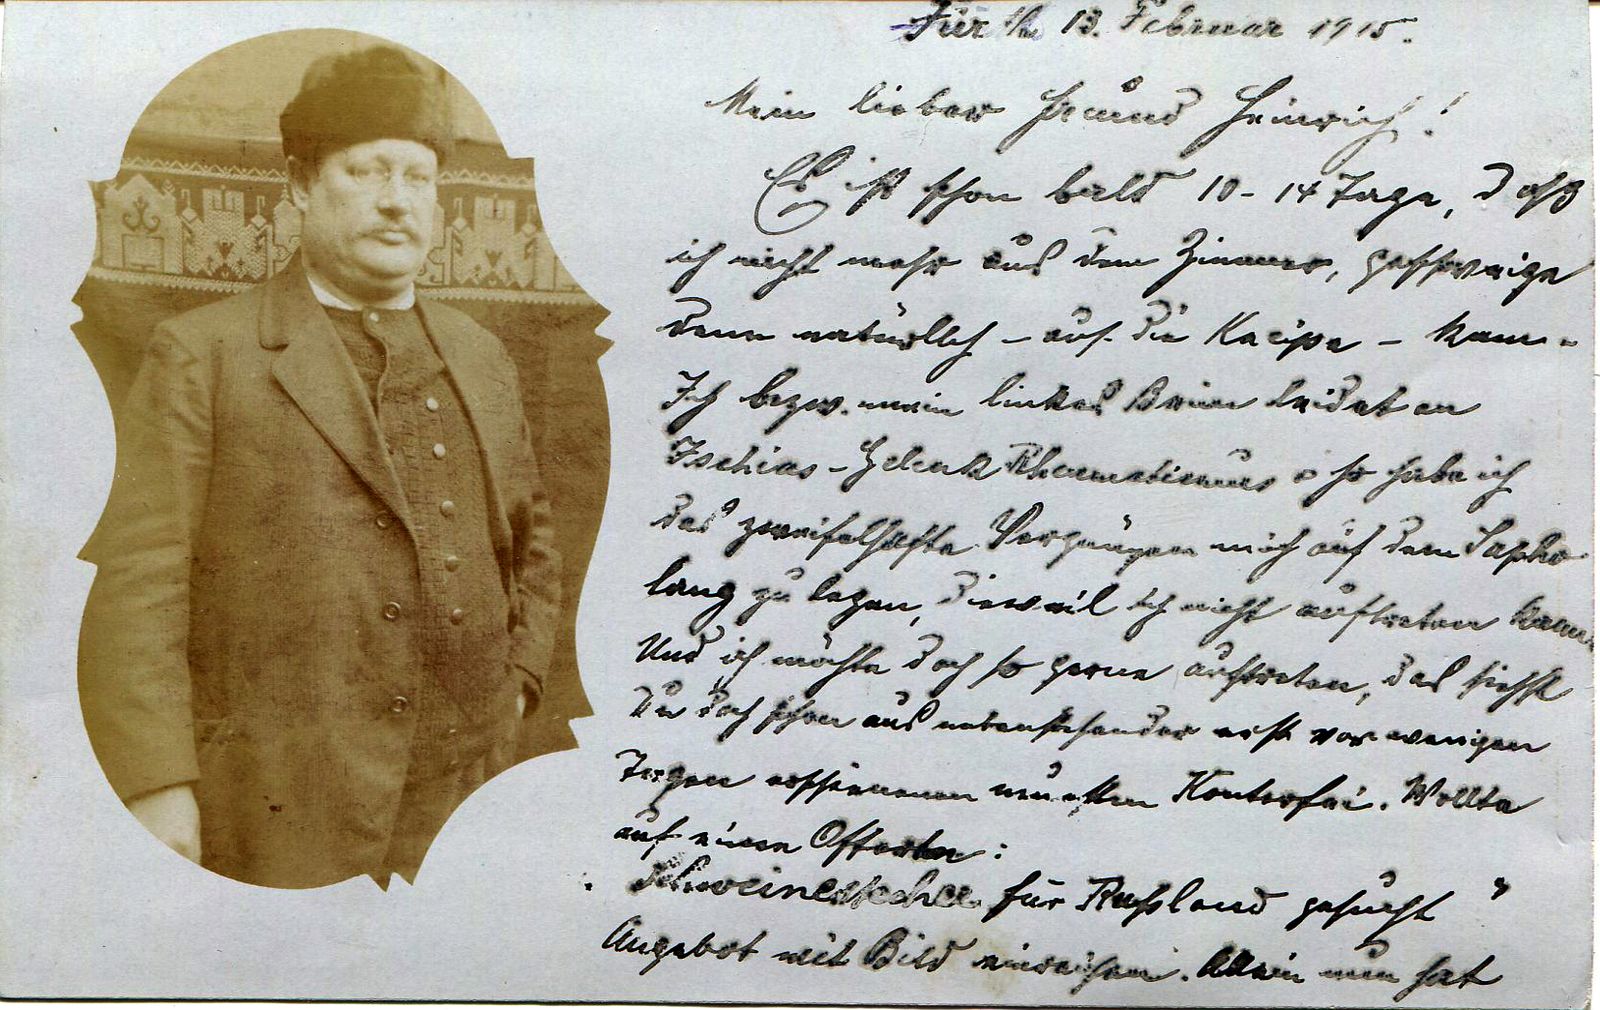 Fürth 13. Februar 1915.
Mein lieber Freund Heinrich!
Es ist schon bald 10-14 Tage, daß
ich nicht mehr aus dem Zimmer, geschweige
denn natürlich - auf die Kneipe - kann.
Ich bezw. mein linkes Bein leidet an
Ischias-Gelenk Rheumatismus so habe ich
das zweifelhafte Vergnügen mich auf dem Sopha
lang zu legen, dieweil ich nicht auftreten kann.
Und ich möchte doch so gerne auftreten, das siehst
Du doch schon aus nebenstehender erst vor wenigen
Tagen erschienenen neuesten Konterfei. Wollte
auf einen Offerten:
"Schweinestecher für Rußland gesucht"
Angebot mit Bild einreichen. Allein nun hat